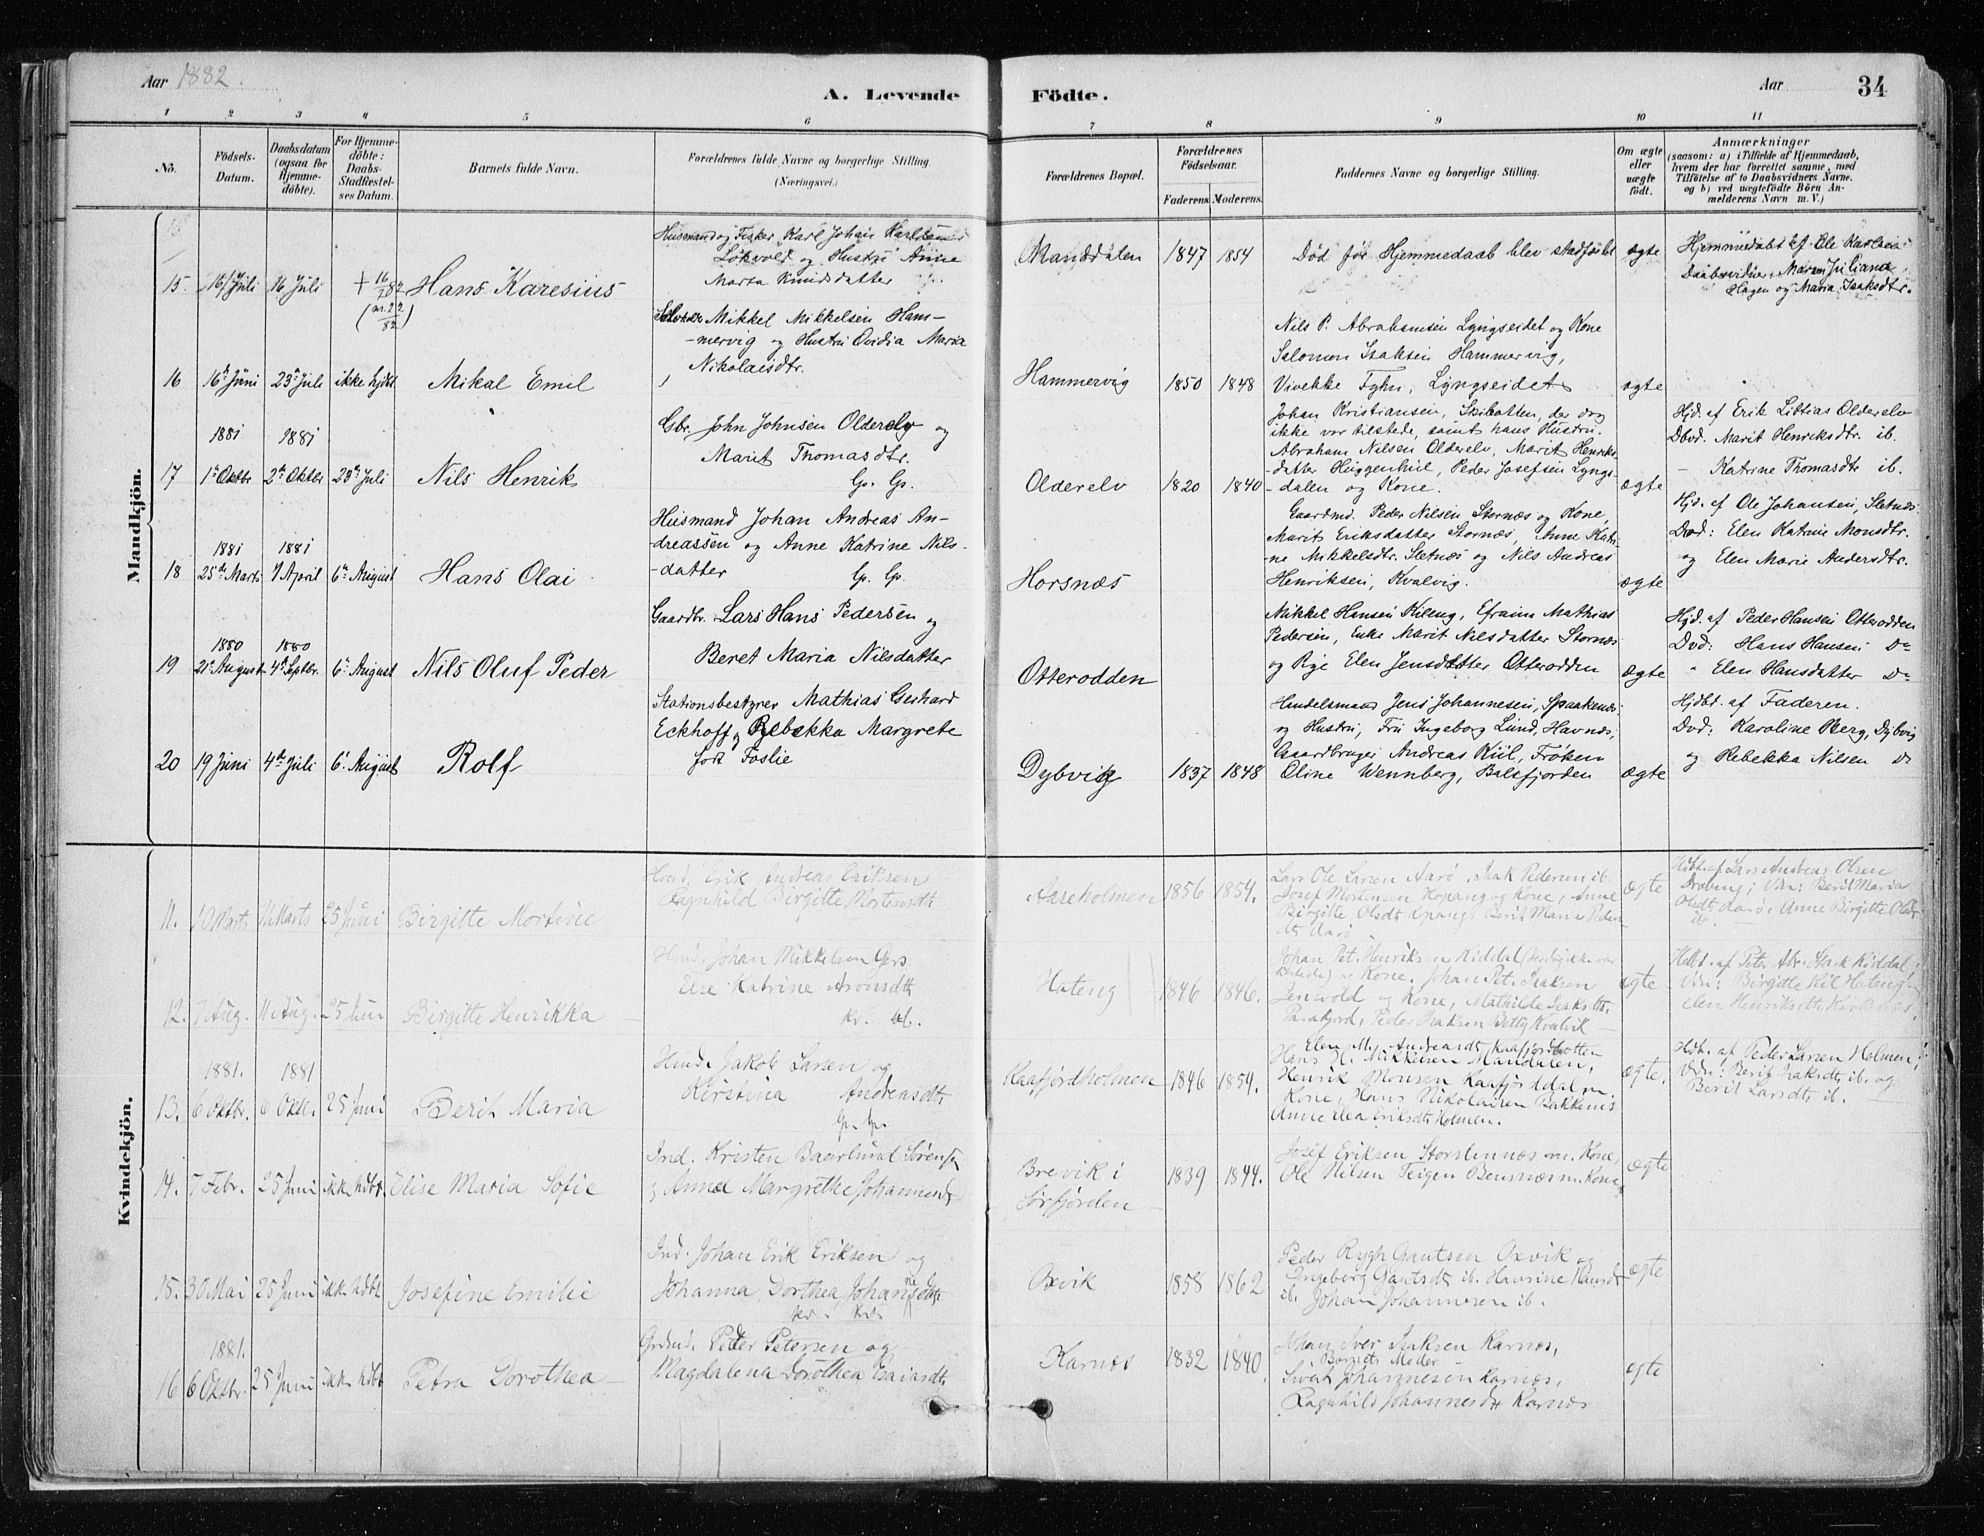 Aar 1882.
A. Levende Födte.
Aar
34
1 2 3 4 5 6 7 8 9 10 11
No.
Födsels-Datum.
Daabsdatum (ogsaa for Hjemme-döbte).
For Hjemme-döbte: Daabs-Stadfæstel-ses Datum.
Barnets fulde Navn.
Forældrenes fulde Navne og borgerlige Stilling. (Næringsvei.)
Forældrenes Bopæl.
Forældrenes Födselsaar.
Faderens. Moderens.
Faddernes Navne og borgerlige Stilling.
Om ægte eller uægte födt.
Anmærkninger
(saasom: a) i Tilfælde af Hjemmedaab, hvem der har forrettet samme, med Tilföielse af to Daabsvidners Navne. og b) ved uægtefödte Börn An-melderens Navn m. V.)
Mandkjön.
Husmand og Fisker Karl Johan
Løkvold og Hustru Anne
Marta Knudsdatter
15. 16/Juli 16 Juli + Hans Karesius
Manddalen 1847 1854
Død før Hjemmedaab blev stadfæstet
ægte
Hjemmedøbt af Ole
Daabsvidner, Maren Juliana
Hagen og Maria Isaksdtr.
Mikkel Mikkelsen Ham-
-mervig og Hustru Ovidia Maria
Nikolaisdtr.
16 16de Juni 23de Juli ikke hjdbt Mikal Emil
Hammervig 1850 1848
Nils P. Abrahamsen Lyngseidet og Kone
Salomon Isaksen Hammervig,
Vivekke Fyhn, Lyngseidet
ægte
Gbr. John Johnsen Olderelv og
Marit Thomasdtr.
Gp. Gp.
1881 1881
17 1ste Oktbr 2den Oktbr 23de Juli Nils Henrik
Olderelv 1820 1840
Johan Kristiansen, Skibotten, der dog
ikke var tilstede, samt hans Hustru.
Abraham Nilsen Olderelv, Marit Henriks-
-datter Huggenkiil, Peder Josefsen Lyngs-
-dalen og Kone.
ægte
Hjd. af Erik Olderelv
Dbvd. Marit Henriksdtr. ib.
- Katrine Thomasdtr ib.
Husmand Johan Andreas An-
-dreassen og Anne Katrine Nils-
-datter Gp. Gp.
1881 1881
18 25de Marts 7 April 6te August Hans Olai
Horsnæs
Gaardmd. Peder Nilsen Stornæs og Kone,
Marit Eriksdatter Stornæs, Anne Katri-
ne Mikkelsdtr. Sletnæs og Nils Andreas
Henriksen, Kvalvig.
ægte
Hjd. af Ole Johansen, Sletnæs
Dvd: Elen Katrine Monsdtr.
og Elen Marie Andersdtr.
Gaardbr. Lars Hans Pedersen og
Beret Maria Nilsdatter
1880 1880
19 21de August 4de Septbr. 6te August Nils Oluf Peder
Otterodden
Mikkel Hansen Kileng, Efraim Mathias
Pedersen, Enke Marit Nilsdatter Stornæs
og Pige Elen Jensdatter Otterodden
ægte
Hjd. af Peder Hansen Otterodden
Dvd: Hans Hansen Do
" Elen Hansdatter Do
Stationsbestyrer Mathias Gerhard
Eckhoff og Rebekka Margrete
født Foslie
20 19 Juni 4de Juli 6te August Rolf
Dybvig 1837 1848
Handelsmand Jens Johannesen, Spaakenæs
og Hustru, Fru Ingeborg Lund, Havnæs,
Gaardbruger Andreas Kiil, Frøken
Oline Wennberg, Balsfjorden
ægte
Hjdbt. af Faderen.
Dvd: Karoline Berg, Dybvig
og Rebekka Nilsen Do
Kvindekjön.
Erik Andreas Eriksen
Ragnhild Birgitte Mortensdt
11. 10 Marts 11 Marts 25 Juni Birgitte Mortine
Aarøholmen 1856 1854.
Lars Ole Larsen Aarø, Isak Pedersen ib.
Josef Mortensen Kopang og Kone, Anne
Birgitte Olsdt Kpang, Berit Marie Peders
dt Aarø
ægte
Hdbt. af Lars Andreas Olsen
Vdn: Berit Maria
Olsdt Aarø, Anne Birgitte Olsdt
ib.
Johan Mikkelsen Gers
Else Katrine Aronsdt
kv. vf.
12. 7 Aug. 11 Aug. 25 Juni Birgitte Henrikka
Hateng 1846 1846.
Johan Pet. Henriksen Kiddal
Kone, Johan Pet. Isaksen
og Kone, Mathilde Isaksdt,
Peder Isaksen
ægte
Hdbt. af Peter Kiddal,
Vdn: Birgitte Kiil Hateng
Elen Henriksdt,
Jakob Larsen og
Kirstina Andreasdt
1881. 1881
13. 6 Oktbr. 6 Okt. 25 Juni Berit Maria
Kaafjordholmen 1846 1854.
Elen M. Andreasdt Kaafjordbotten
Hans H. Mikkelsen Mandalen,
Henrik Monsen Kaafjorddal m.
Kone, Hans Nikolaisen Bakkenes
Anne Eriksdt Holmen.
ægte.
Hdbt. af Peder Larsen Holmen,
Vdn: Berit Isaksdt, ib. og
Berit Larsdt, ib.
Ind. Kristen Baarlund Sørensen
og Anna Margrethe Johannesdt
14. 7 Febr. 25 Juni ikk. hdbt. Elise Maria Sofie
Brevik i
Sørfjorden
1839 1844.
Josef Eriksen Storstennæs m. Kone,
Ole Nilsen Teigen Bensnæs m. Kone,
ægte
Ind. Johan Erik Eriksen og
Johanna Dorthea Johannesdt
kv. kv.
15. 30 Mai 25 Juni ikk. hdbt Josefine Emilie
Oxvik 1858 1862
Peder Rygh Gautsen Oxvik og
Ingeborg Gautsdt ib. Hansine Hansdt
ib. Johan Johannesen ib.
ægte
Peder Petersen og
Magdalena Dorothea Esaiasdt
1881.
16 6 Oktbr. 25 Juni ikk. hdbt Petra Dorothea
Karnæs 1832 1840.
Johan Iver Isaksen Karnæs,
Barnets Moder
Sivert Johannesen Karnæs,
Ragnhild Johannesdt Karnæs
ægte